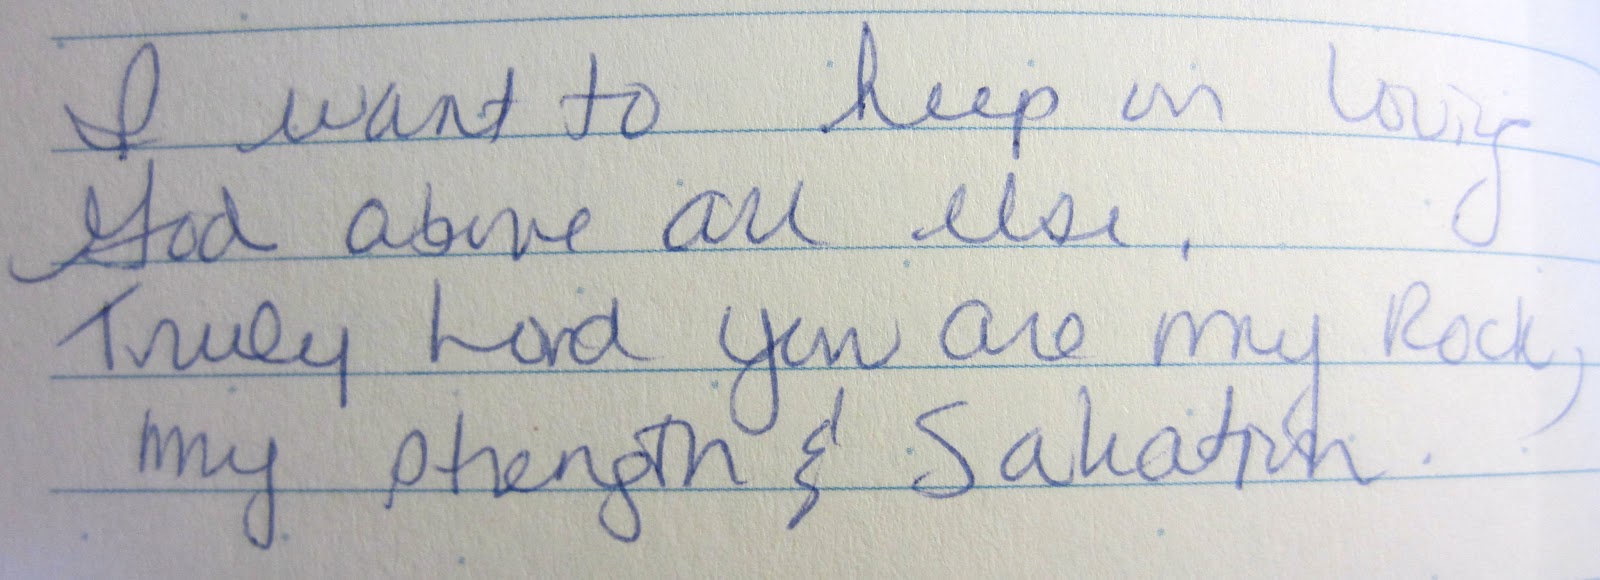 I want to keep on loving
God above all else.
Truly Lord you are my Rock,
my strength & Salvation.